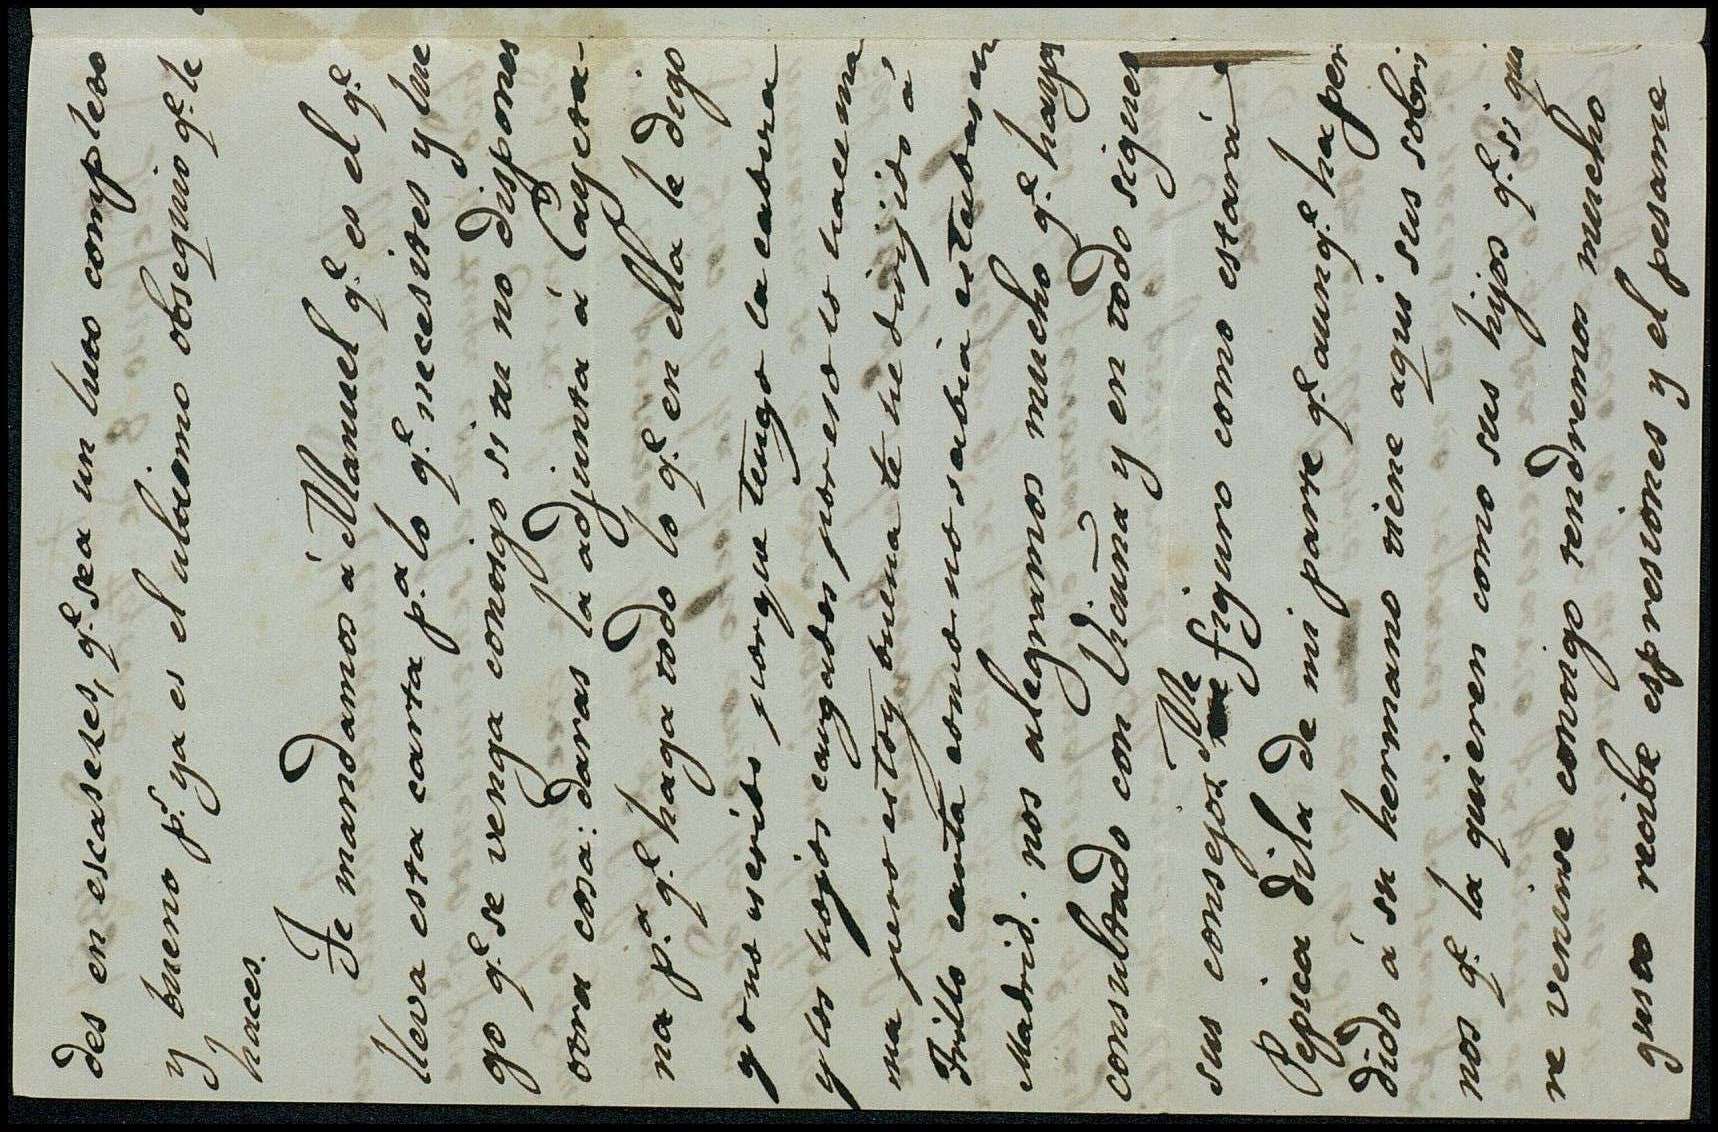 des en escaseses, q.e sea un luto completo
y bueno p.s ya es el ultimo obsequio q.e le
haces.
Te mandamos á Manuel q.e es el q.e
lleva esta carta p.a lo q.e necesites y lue
go q.e se venga contigo si tu no dispones
otra cosa: daras la adjunta á Cayeta-
na p.a q.e haga todo lo q.e en ella le digo
yo no escribo porque tengo la cabeza
y los hojos cargados por eso lo hace ma
ma pero estoy buena te he dirijido á
Trillo carta como no sabia estabas en
Madrid. nos alegramos mucho q.e hayas
consultado con Vicuña y en todo sigues
sus consejos. Me figuro como estará
Pepica dila de mi parte q.e aunq.e ha per
dido á su hermano tiene aqui sus sobri
nos q.e la quieren como sus hijos q.e si quie
re venirse contigo tendremos mucho
gusto recibe espresiones y el pesame